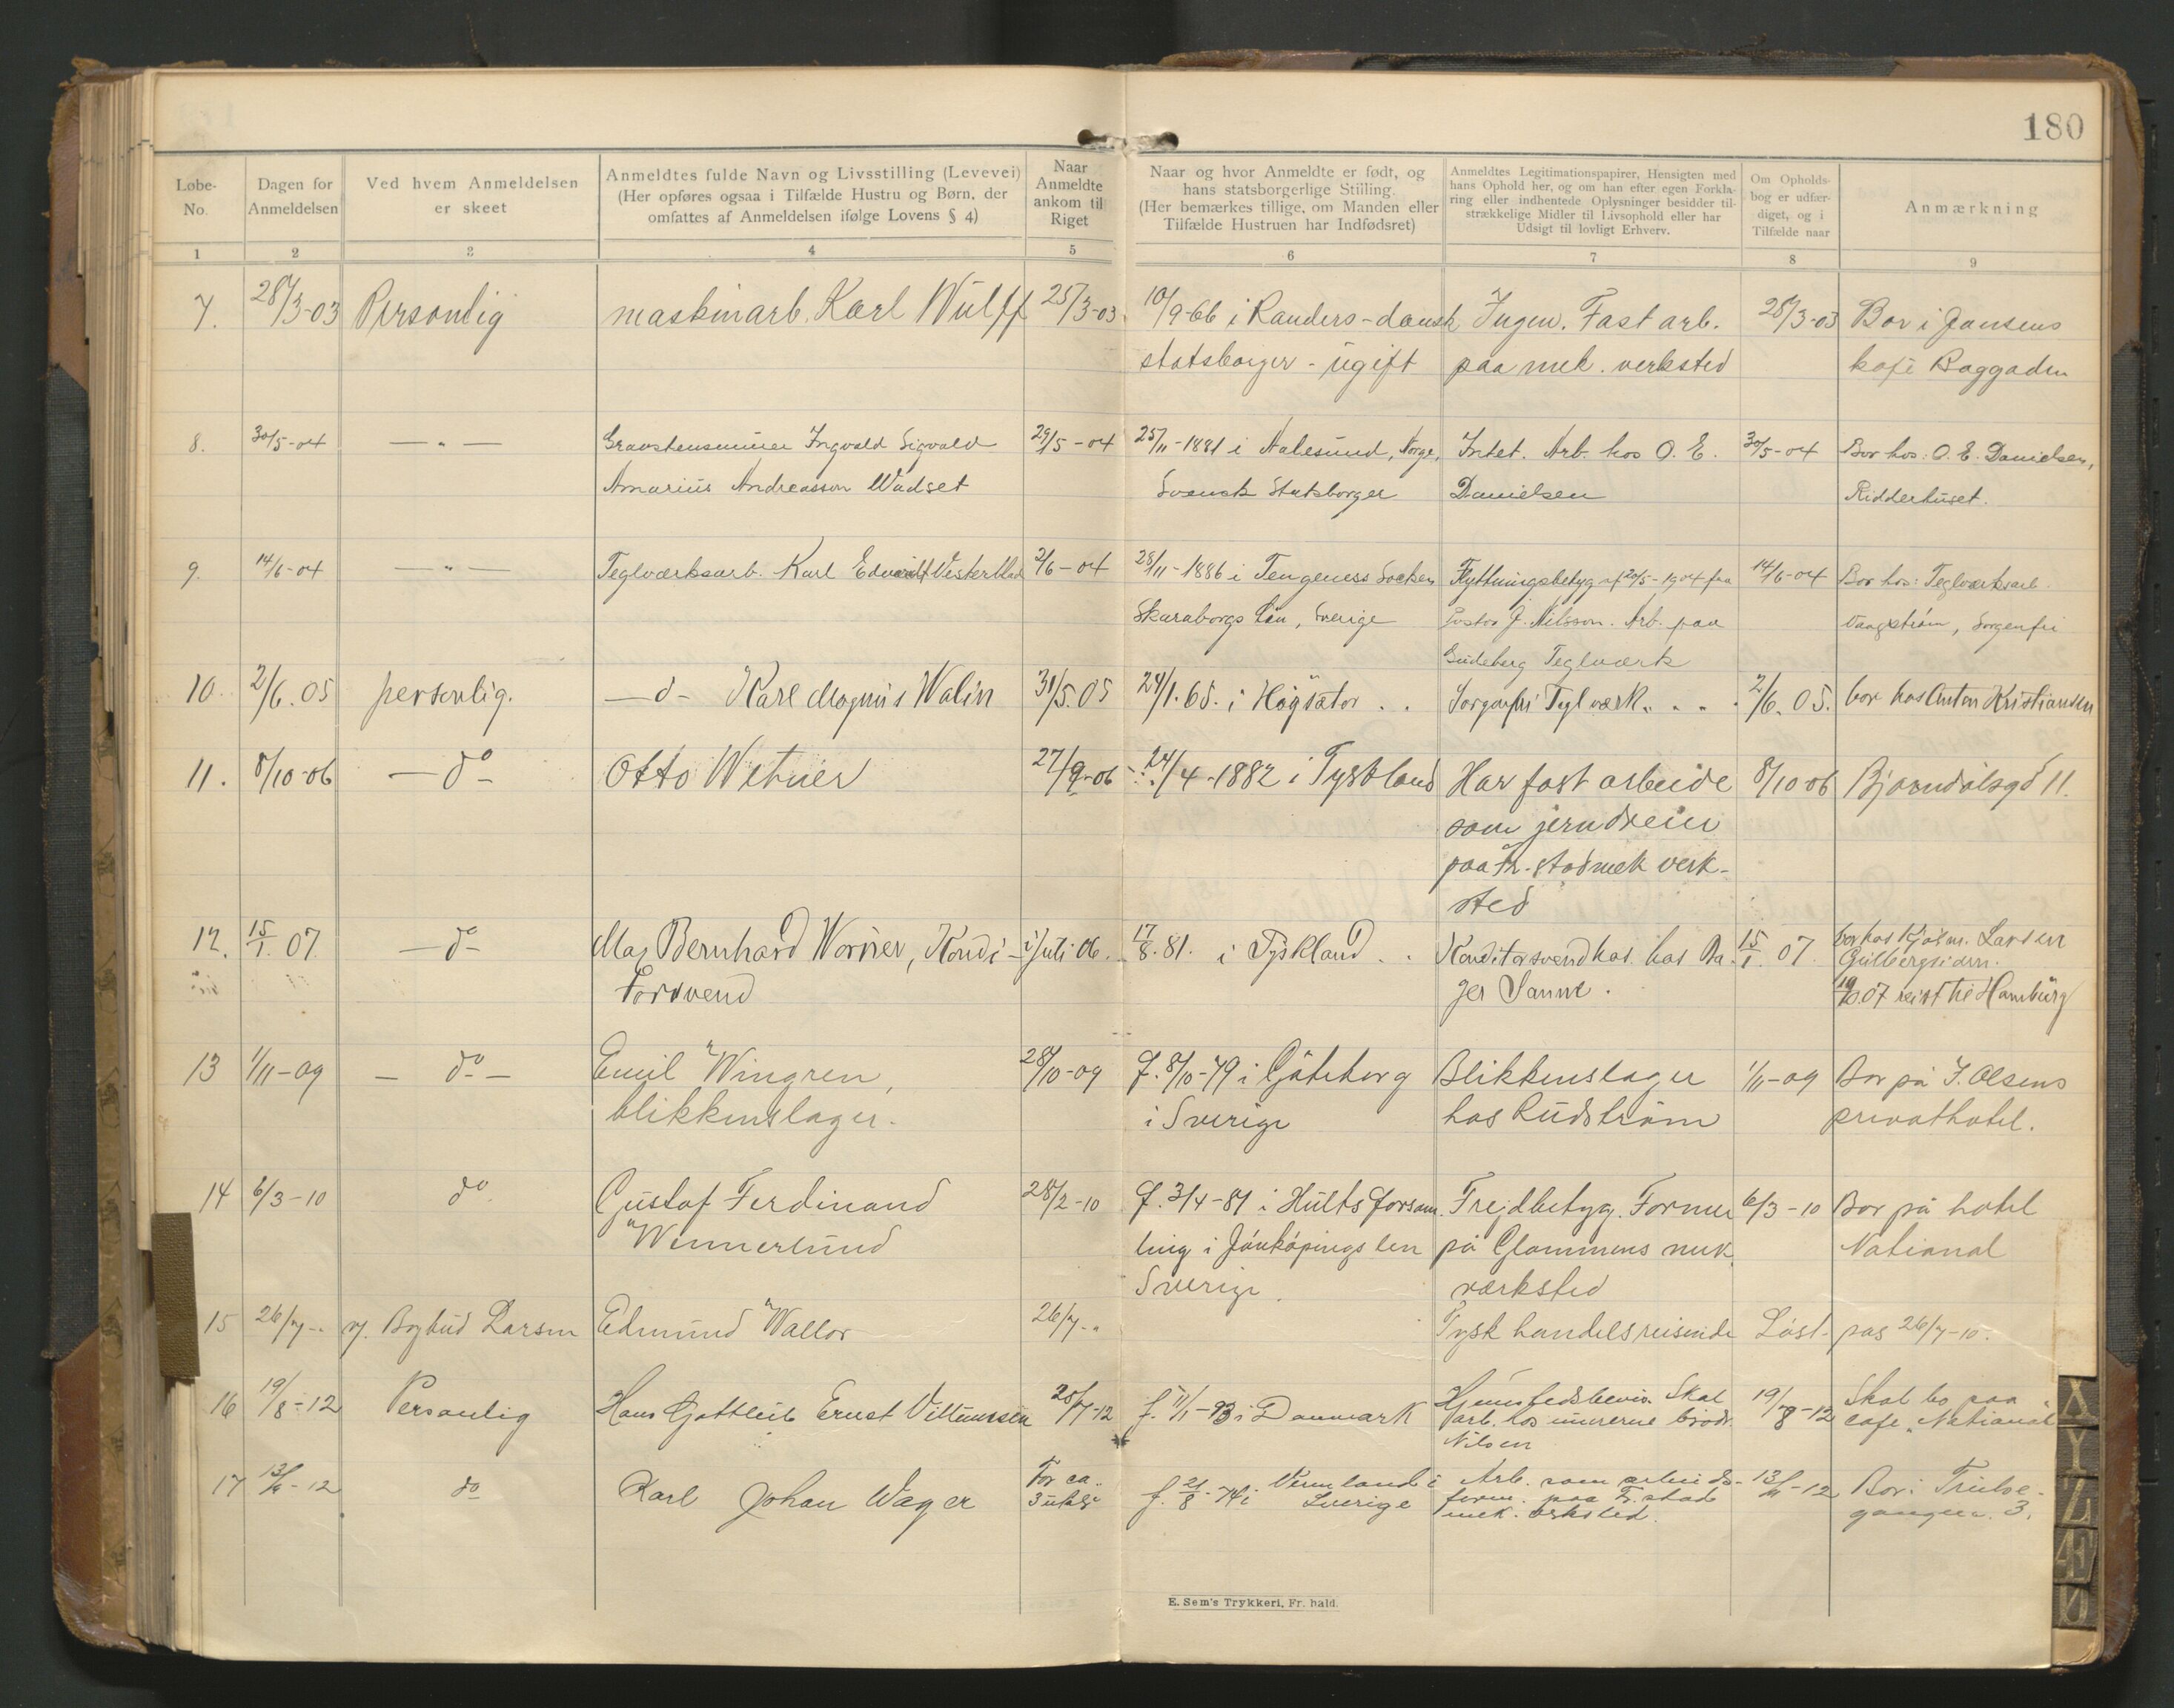 180
Løbe-
No.
Dagen for
Anmeldelsen
Ved hvem Anmeldelsen
er skeet
Anmeldtes fulde Navn og Livsstilling (Levevei)
(Her opføres ogsaa i Tilfælde Hustru og Børn, der
omfattes af Anmeldelsen ifølge Lovens § 4)
Naar
Anmeldte
ankom til
Riget
Naar og hvor Anmeldte er født, og
hans statsborgerlige Stilling.
(Her bemærkes tillige, om Manden eller
Tilfælde Hustruen har Indfødsret)
Anmeldtes Legitimationspapirer, Hensigten med
hans Ophold her, og om han efter egen Forkla-
ring eller indhentede Oplysninger besidder til-
strækkelige Midler til Livsophold eller har
Udsigt til lovligt Erhverv.
Om Opholds-
bog er udfær-
diget, og i
Tilfælde naar
Anmærkning
1 2 3 4 5 6 7 8 9
7. 28/3-03 Personlig maskinarb. Karl Wulff 25/3-03. 10/9-66 i Randers - dansk Ingen. Fast arb. 28/3-03 Bor i Jansens
statsborger - ugift paa mek. verksted kafe Baggaden
8. 30/5-04 — " — Gravstensmurer Ingvald Sigvald 29/5-04 25/11-1881 i Aalesund, Norge, Intet. Arb. hos O. E. 30/5-04 Bor hos: O. E. Danielsen,
Amarius Andreasson Wadset Svensk Statsborger Danielsen Ridderhuset.
9. 14/6-04 — " — Teglværksarb. Karl Edvardt Vesterblad 2/6-04 28/11-1886 i Tengeness Socken Flyttningsbetyg af 20/5-1904 fra 14/6-04 Bor hos: Teglværksarb.
Skaraborgs Län, Sverige Pastor J. Nilsson. Arb. paa Vangström, Sorgenfri
Gudeberg Teglværk
10. 2/6.05 personlig. — d - Karl Magnus Walin 31/5.05 24/1.65. i Högsäter . . Sorgenfri Teglværk. . . . 2/6.05. bor hos Anton Kristiansen
11. 8/10-06 — do - Otto Wetner 27/9-06 24/4-1882 i Tyskland Har fast arbeide 8/10-06 Bjørndalsgd 11.
som jerndreier
paa Fr.stad mek verk-
sted
12. 15/1.07. — do - Max Bernhard Worner, Kondi- i Juli 06. 17/8.81. i Tyskland . . Konditorsvend hos Ba- 15/1.07. bor hos Kjøbm. Larsen
torsvend ger Sanne. Gulbergsiden.
19/10.07 reist til Hamburg
13 1/11-09 — do — Emil Wingren, 28/10-09 f. 8/10-79 i Göteborg Blikkenslager 1/11-09 Bor på J. Olsens
blikkenslager. i Sverige hos Rudström privathotel.
14 6/3-10 do Gustaf Ferdinand 28/2-10 f. 3/4-81 i Hults forsam. Frejdbetyg. Former 6/3-10 Bor på hotel
Wennerlund ling i Jönköpings len på Glommens mek. National
Sverige. verksted
15 26/7 - " v. Bybud Larsen Edmund Wallor 26/7 - " Tysk handelsreisende Løst - pas 26/7-10.
16 19/8-12 Personlig Hans Gottlieb Ernst Villumssen 25/7-12 f. 11/1-93 i Danmark Hjemstedsbevis. Skal 19/8-12 Skal bo paa
arb. hos murerne brødr. cafe "National"
Nilsen
17 13/11-12 do Karl Johan Wager For ca. f. 21/8-74 i Vermland i Arb. som arbeids- 13/11-12 Bor i
Sverige form. paa Fr.stad gangen. 3.
mek. verksted.
E. Sem's Trykkeri, Fr. hald.
X
Y
Z
Æ
Ø